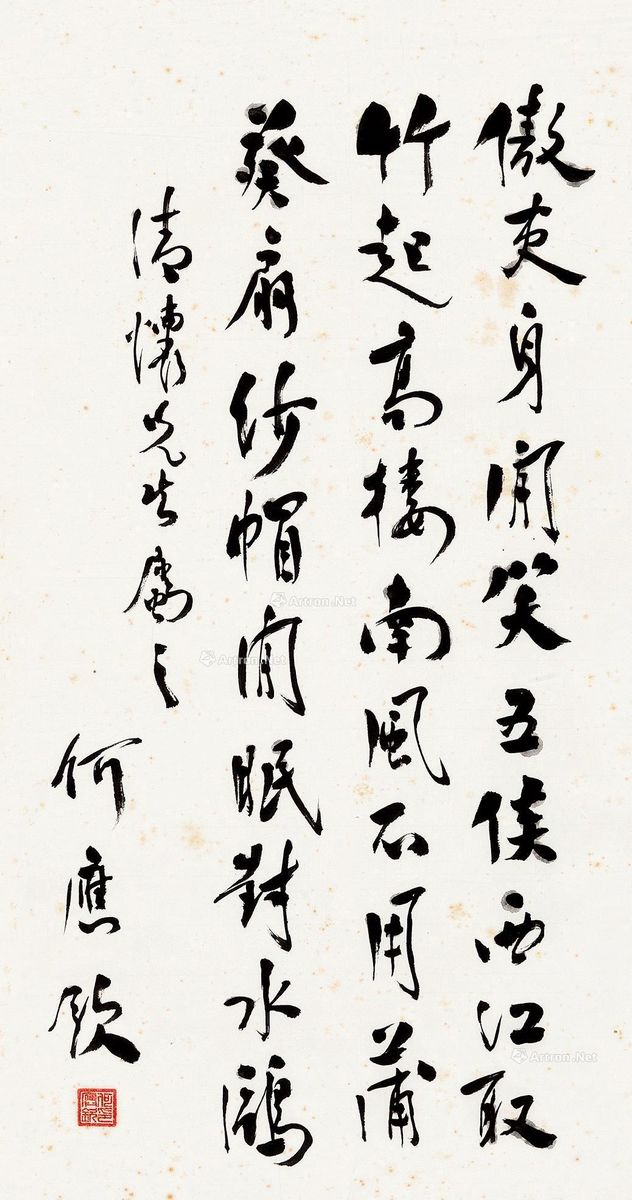 傲吏身閒笑五侯西江取
竹起高樓南風不用蒲
葵扇紗帽閒眠對水鷗
清懷先生屬之
何應欽
Artron.Net
Artron.Net
Artron.Net